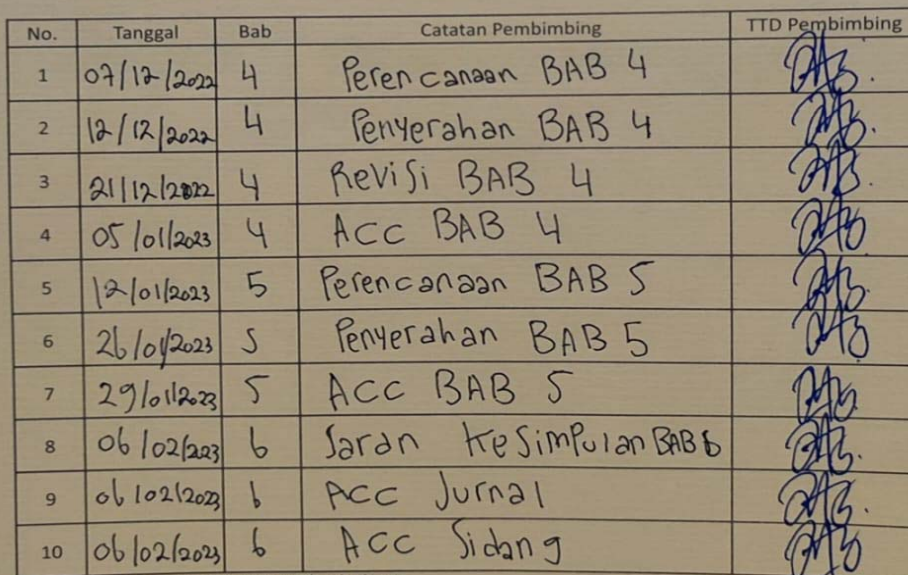 No. Tanggal Bab Catatan Pembimbing TTD Pembimbing
1 07/12/2022 4 Perencanaan BAB 4
2 12/12/2022 4 Penyerahan BAB 4
3 21/12/2022 4 Revisi BAB 4
4 05/01/2023 4 ACC BAB 4
5 12/01/2023 5 Perencanaan BAB 5
6 26/01/2023 5 Penyerahan BAB 5
7 29/01/2023 5 ACC BAB 5
8 06/02/2023 6 Saran Kesimpulan BAB 6
9 06/02/2023 6 ACC Jurnal
10 06/02/2023 6 ACC Sidang